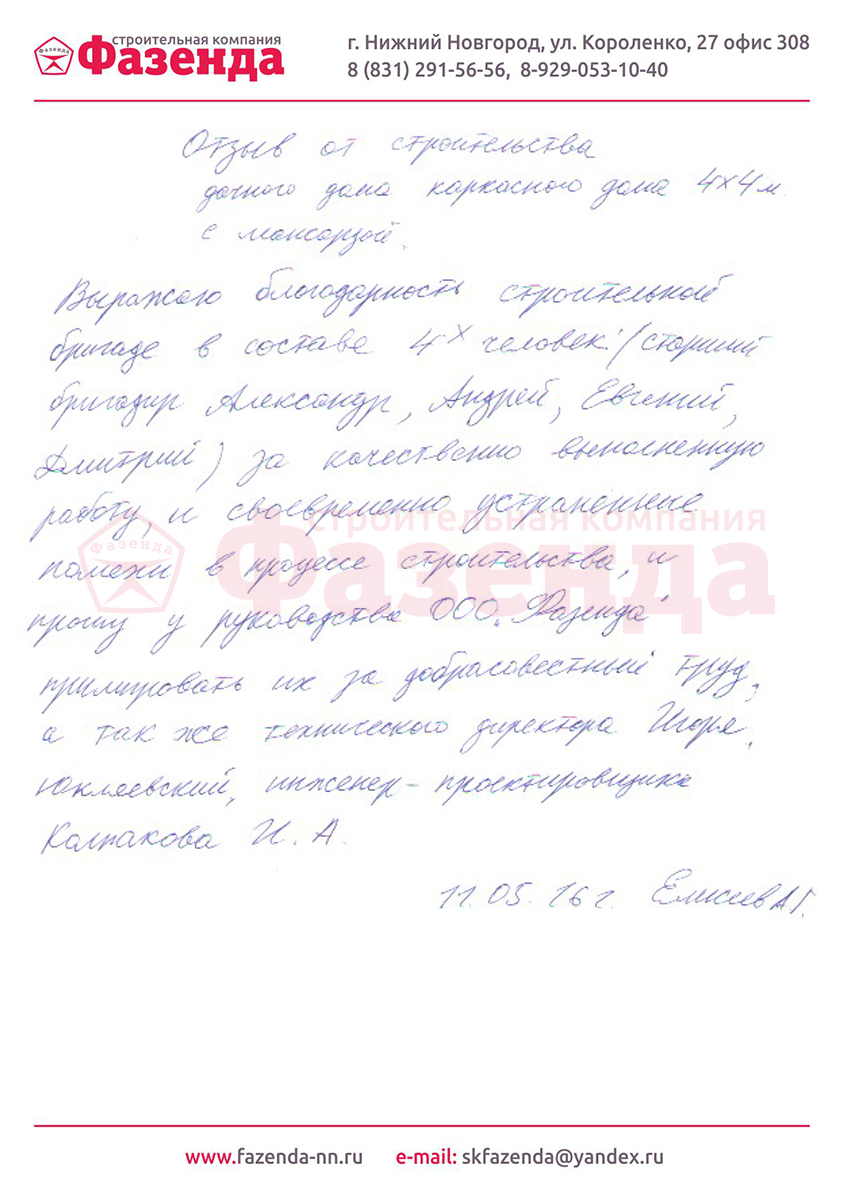 строительная компания
Фазенда
Фазенда
г. Нижний Новгород, ул. Короленко, 27 офис 308
8 (831) 291-56-56, 8-929-053-10-40
Отзыв от строительства
дачного дома каркасного дома 4х4м.
с мансардой.
Выражаю благодарность строительной
бригаде в составе 4х человек: (старший
бригадир Александр, Андрей, Евгений,
Дмитрий) за качественно выполненную
работу, и своевременно устраненные
помехи в процессе строительства, и
прошу у руководства ООО „Фазенда"
примировать их за добрасовестный труд,
а так же технического директора Игоря.
Юкляевский, инженер-проектировщика
Колпакова И. А.
11.05.16г. Елисеев А Г.
строительная компания
Фазенда
Фазенда
www.fazenda-nn.ru e-mail: skfazenda@yandex.ru